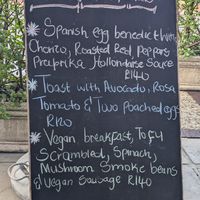 * Spanish egg benedict with
Chorizo, Roasted Red Peppers
Preprika Hollondaise Sauce
R140
* Toast with Avocado, Rosa
Tomato & Two poached eggs
R120
* Vegan breakfast, Tofu
Scrambled, Spinach,
Mushroom Smoke beans
& Vegan Sausage R140